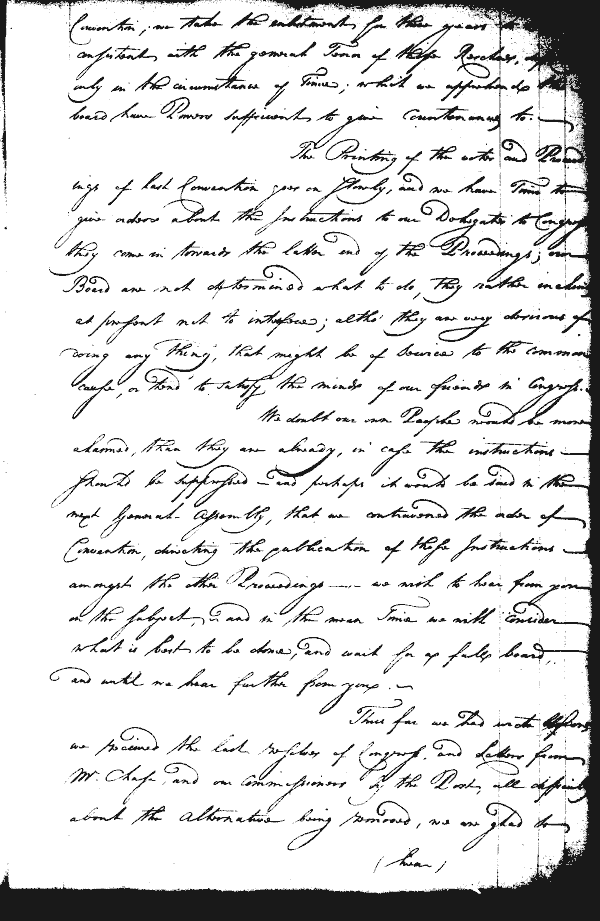 Convention, we take the enlistment for three years to
consistent with the general Tenor of these Resolves,
only in the circumstance of Time; which we apprehend the
board have Powers sufficient to give Countenance to.—
The Printing of the votes and Proceed
ings of last Convention goes on slowly, and we have Time to
give orders about the Instructions to our Delegates to Congress
they come in towards the latter end of the Proceedings; our
Board are not determined what to do, They rather incline
at present not to interfere; altho' they are very desirous of
doing any Thing, that might be of Service to the common
cause, or tend to satisfy the minds of our friends in Congress.
We doubt our own People would be more
alarmed, than they are already, in case the instructions —
should be suppressed — and perhaps it would be said in the
next General Assembly, that we contravened the order of
Convention, directing the publication of these Instructions —
amongst the other Proceedings —— we wish to hear from you
on the subject, and in the mean Time we will consider
what is best to be done, and wait for a full board,
and until we hear further from you. —
Thus far we had wrote before
we received the last resolves of Congress, and Letters from
Mr. Chase, and our Commissioners by the Post, all difficulty
about the Alternative being removed, we are glad to
(hear)